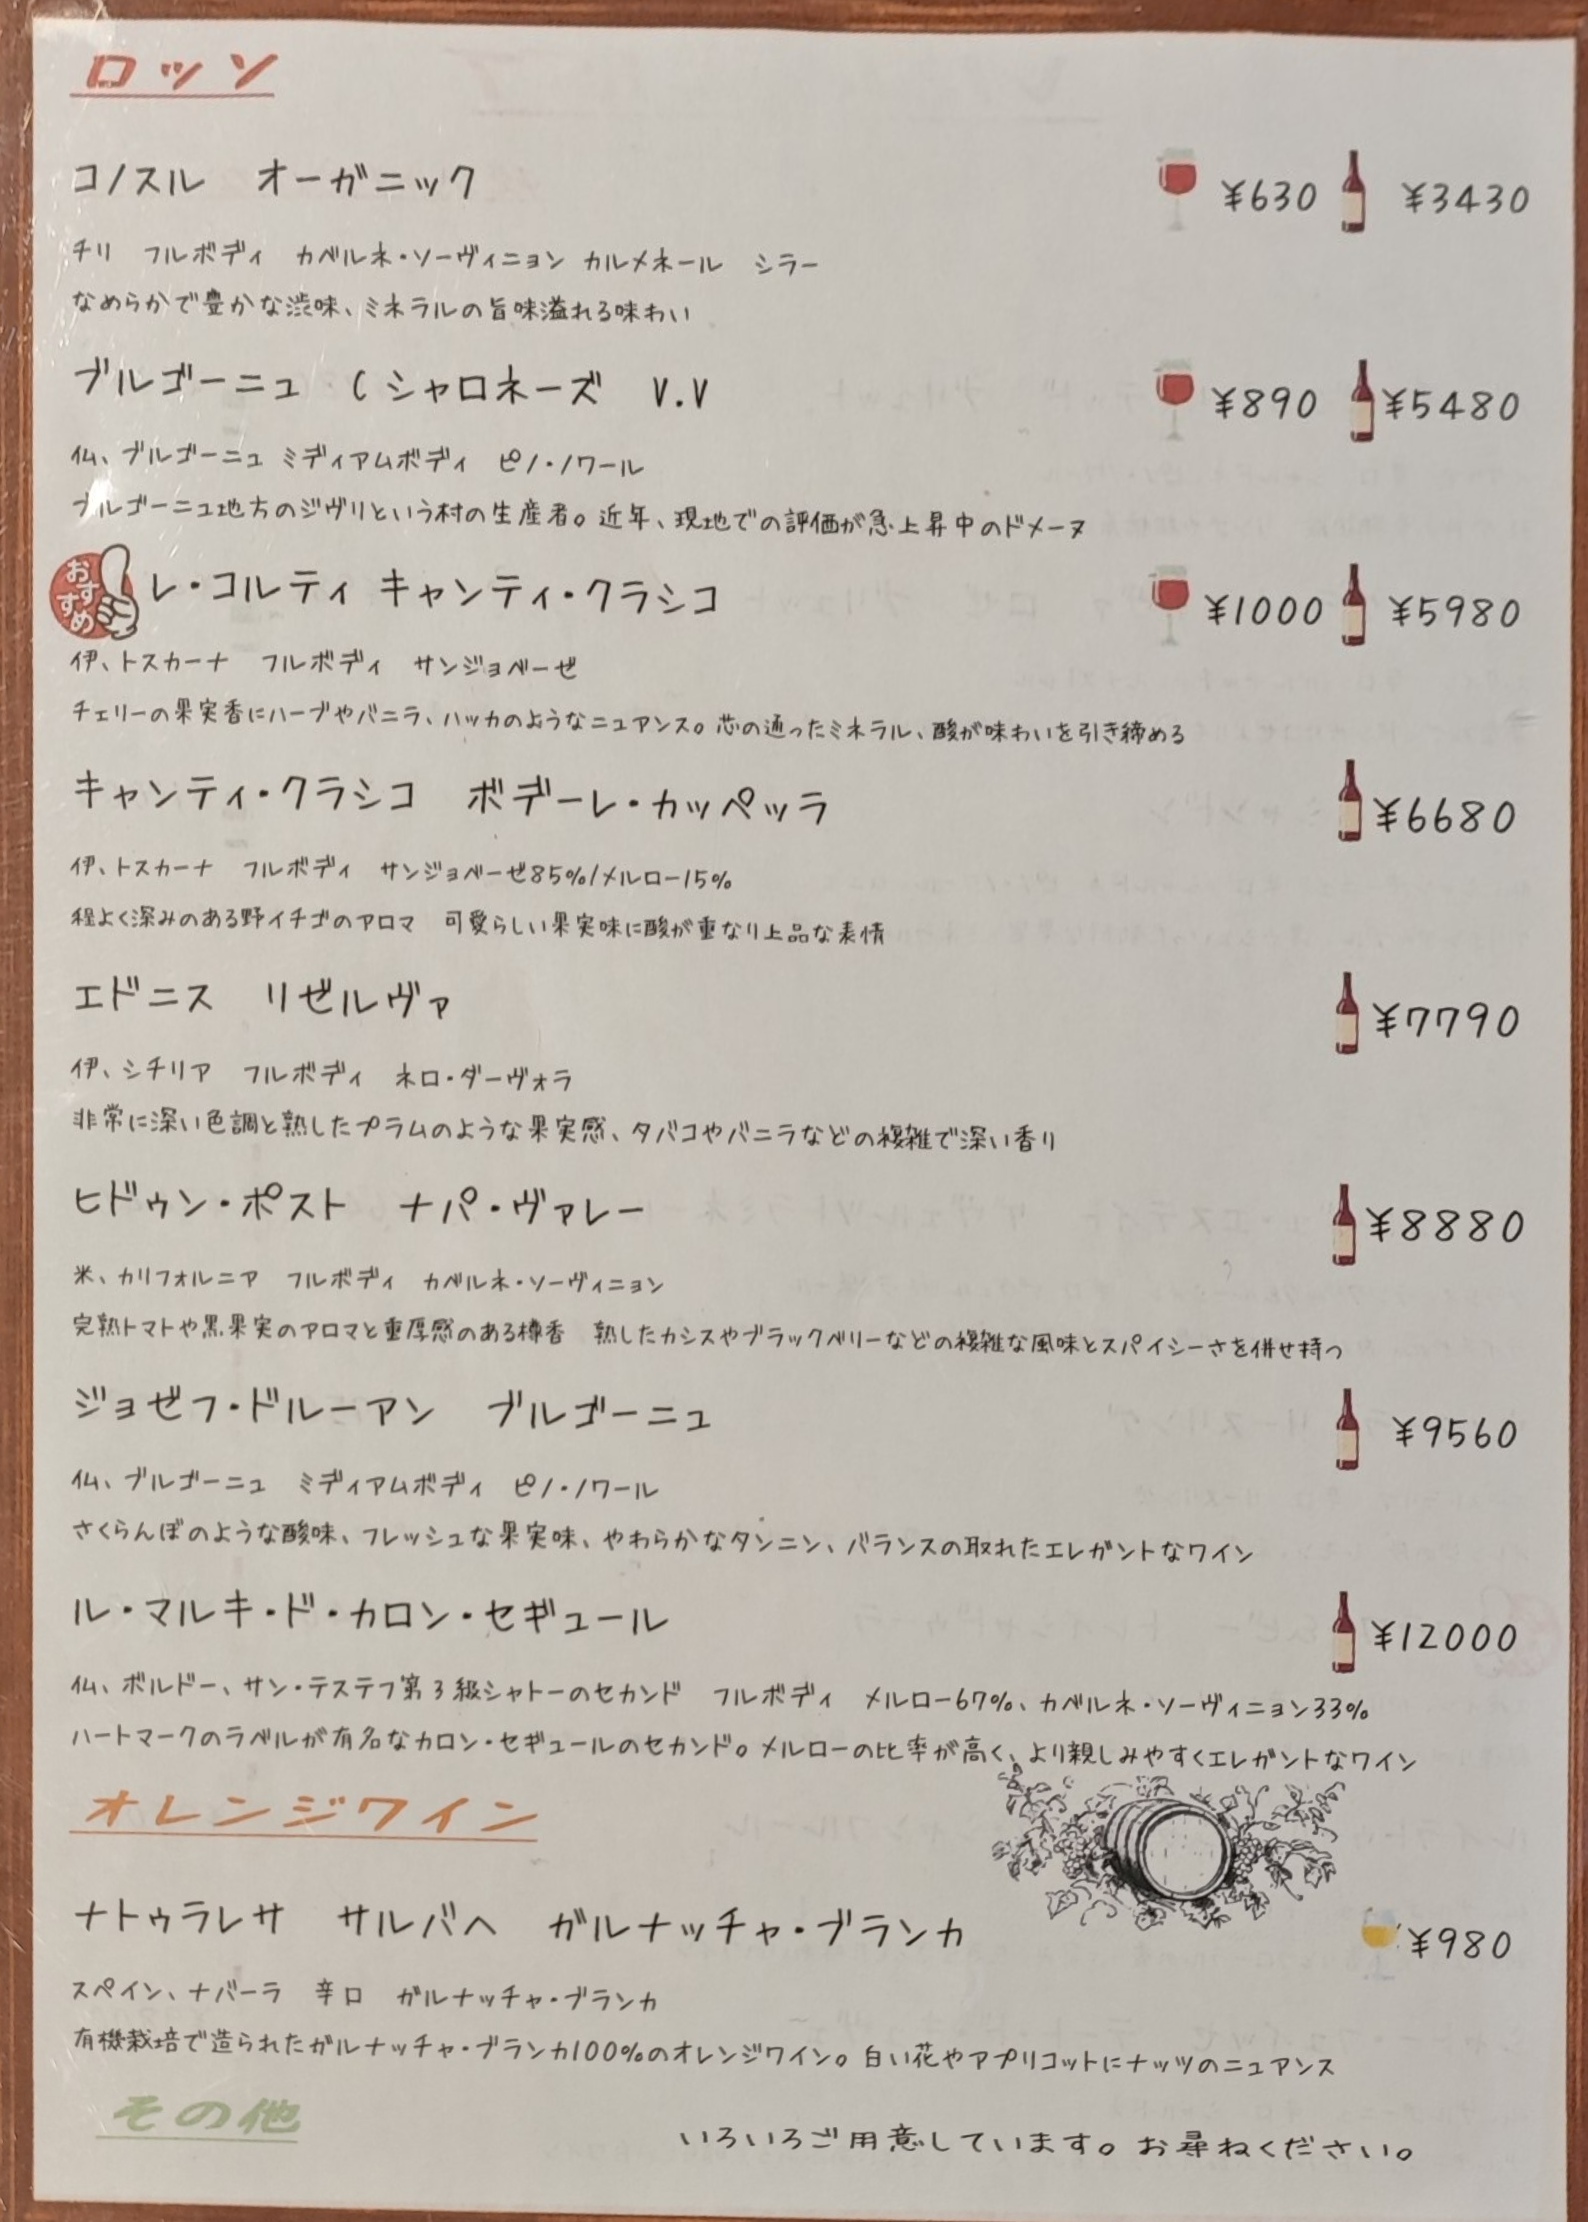 ロッソ
コノスル オーガニック ¥630 ¥3430
チリ フルボディ カベルネ・ソーヴィニョン カルメネール シラー
なめらかで豊かな渋味、ミネラルの旨味溢れる味わい
ブルゴーニュ C シャロネーズ V.V ¥890 ¥5480
仏、ブルゴーニュ ミディアムボディ ピノ・ノワール
ブルゴーニュ地方のジヴリという村の生産者。近年、現地での評価が急上昇中のドメーヌ
おすすめ レ・コルティ キャンティ・クラシコ ¥1000 ¥5980
伊、トスカーナ フルボディ サンジョベーゼ
チェリーの果実香にハーブやバニラ、ハッカのようなニュアンス。芯の通ったミネラル、酸が味わいを引き締める
キャンティ・クラシコ ボデーレ・カッペッラ ¥6680
伊、トスカーナ フルボディ サンジョベーゼ85%/メルロー15%
程よく深みのある野イチゴのアロマ 可愛らしい果実味に酸が重なり上品な表情
エドニス リゼルヴァ ¥7790
伊、シチリア フルボディ ネロ・ダーヴォラ
非常に深い色調と熟したプラムのような果実感、タバコやバニラなどの複雑で深い香り
ヒドゥン・ポスト ナパ・ヴァレー ¥8880
米、カリフォルニア フルボディ カベルネ・ソーヴィニョン
完熟トマトや黒果実のアロマと重厚感のある樽香 熟したカシスやブラックベリーなどの複雑な風味とスパイシーさを併せ持つ
ジョゼフ・ドルーアン ブルゴーニュ ¥9560
仏、ブルゴーニュ ミディアムボディ ピノ・ノワール
さくらんぼのような酸味、フレッシュな果実味、やわらかなタンニン、バランスの取れたエレガントなワイン
ル・マルキ・ド・カロン・セギュール ¥12000
仏、ボルドー、サン・テステフ第3級シャトーのセカンド フルボディ メルロー67%、カベルネ・ソーヴィニョン33%
ハートマークのラベルが有名なカロン・セギュールのセカンド。メルローの比率が高く、より親しみやすくエレガントなワイン
オレンジワイン
ナトゥラレサ サルバヘ ガルナッチャ・ブランカ ¥980
スペイン、ナバーラ 辛口 ガルナッチャ・ブランカ
有機栽培で造られたガルナッチャ・ブランカ100%のオレンジワイン。白い花やアプリコットにナッツのニュアンス
その他
いろいろご用意しています。お尋ねください。